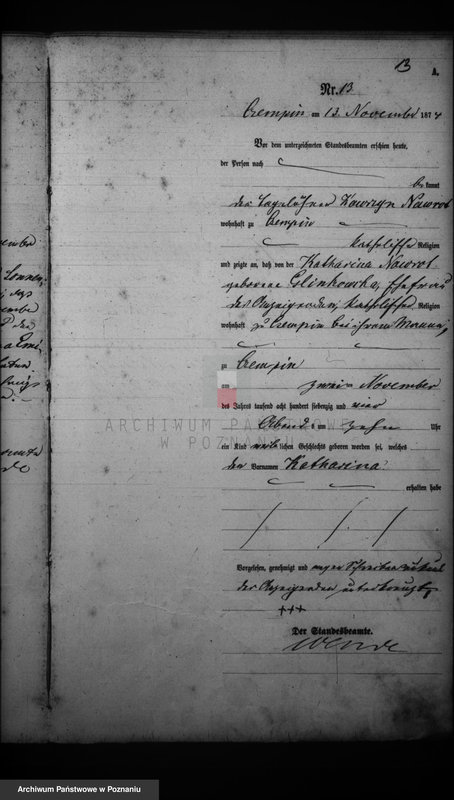 13
A.
Nr. 13
Czempin am 13. November 1874
Vor dem unterzeichneten Standesbeamten erschien heute,
der Person nach
bekannt
der Tagelöhner Nawrot
wohnhaft zu Czempin
katholischer Religion
und zeigte an, daß von der Katharina Nawrot
geborene Glinkowska, Ehefrau
des Anzeigenden, katholischer Religion
wohnhaft zu Czempin bei ihrem Manne,
zu Czempin
am zweiten November
des Jahres tausend acht hundert siebenzig und vier
Abends um zehn Uhr
ein Kind weiblichen Geschlechts geboren worden sei, welches
den Vornamen Katharina
erhalten habe
Vorgelesen, genehmigt und wegen
des Anzeigenden unterkreuzt
+++
Der Standesbeamte.
Wende
ARCHIWUM PAŃSTWOWE
W POZNANIU
Archiwum Państwowe w Poznaniu